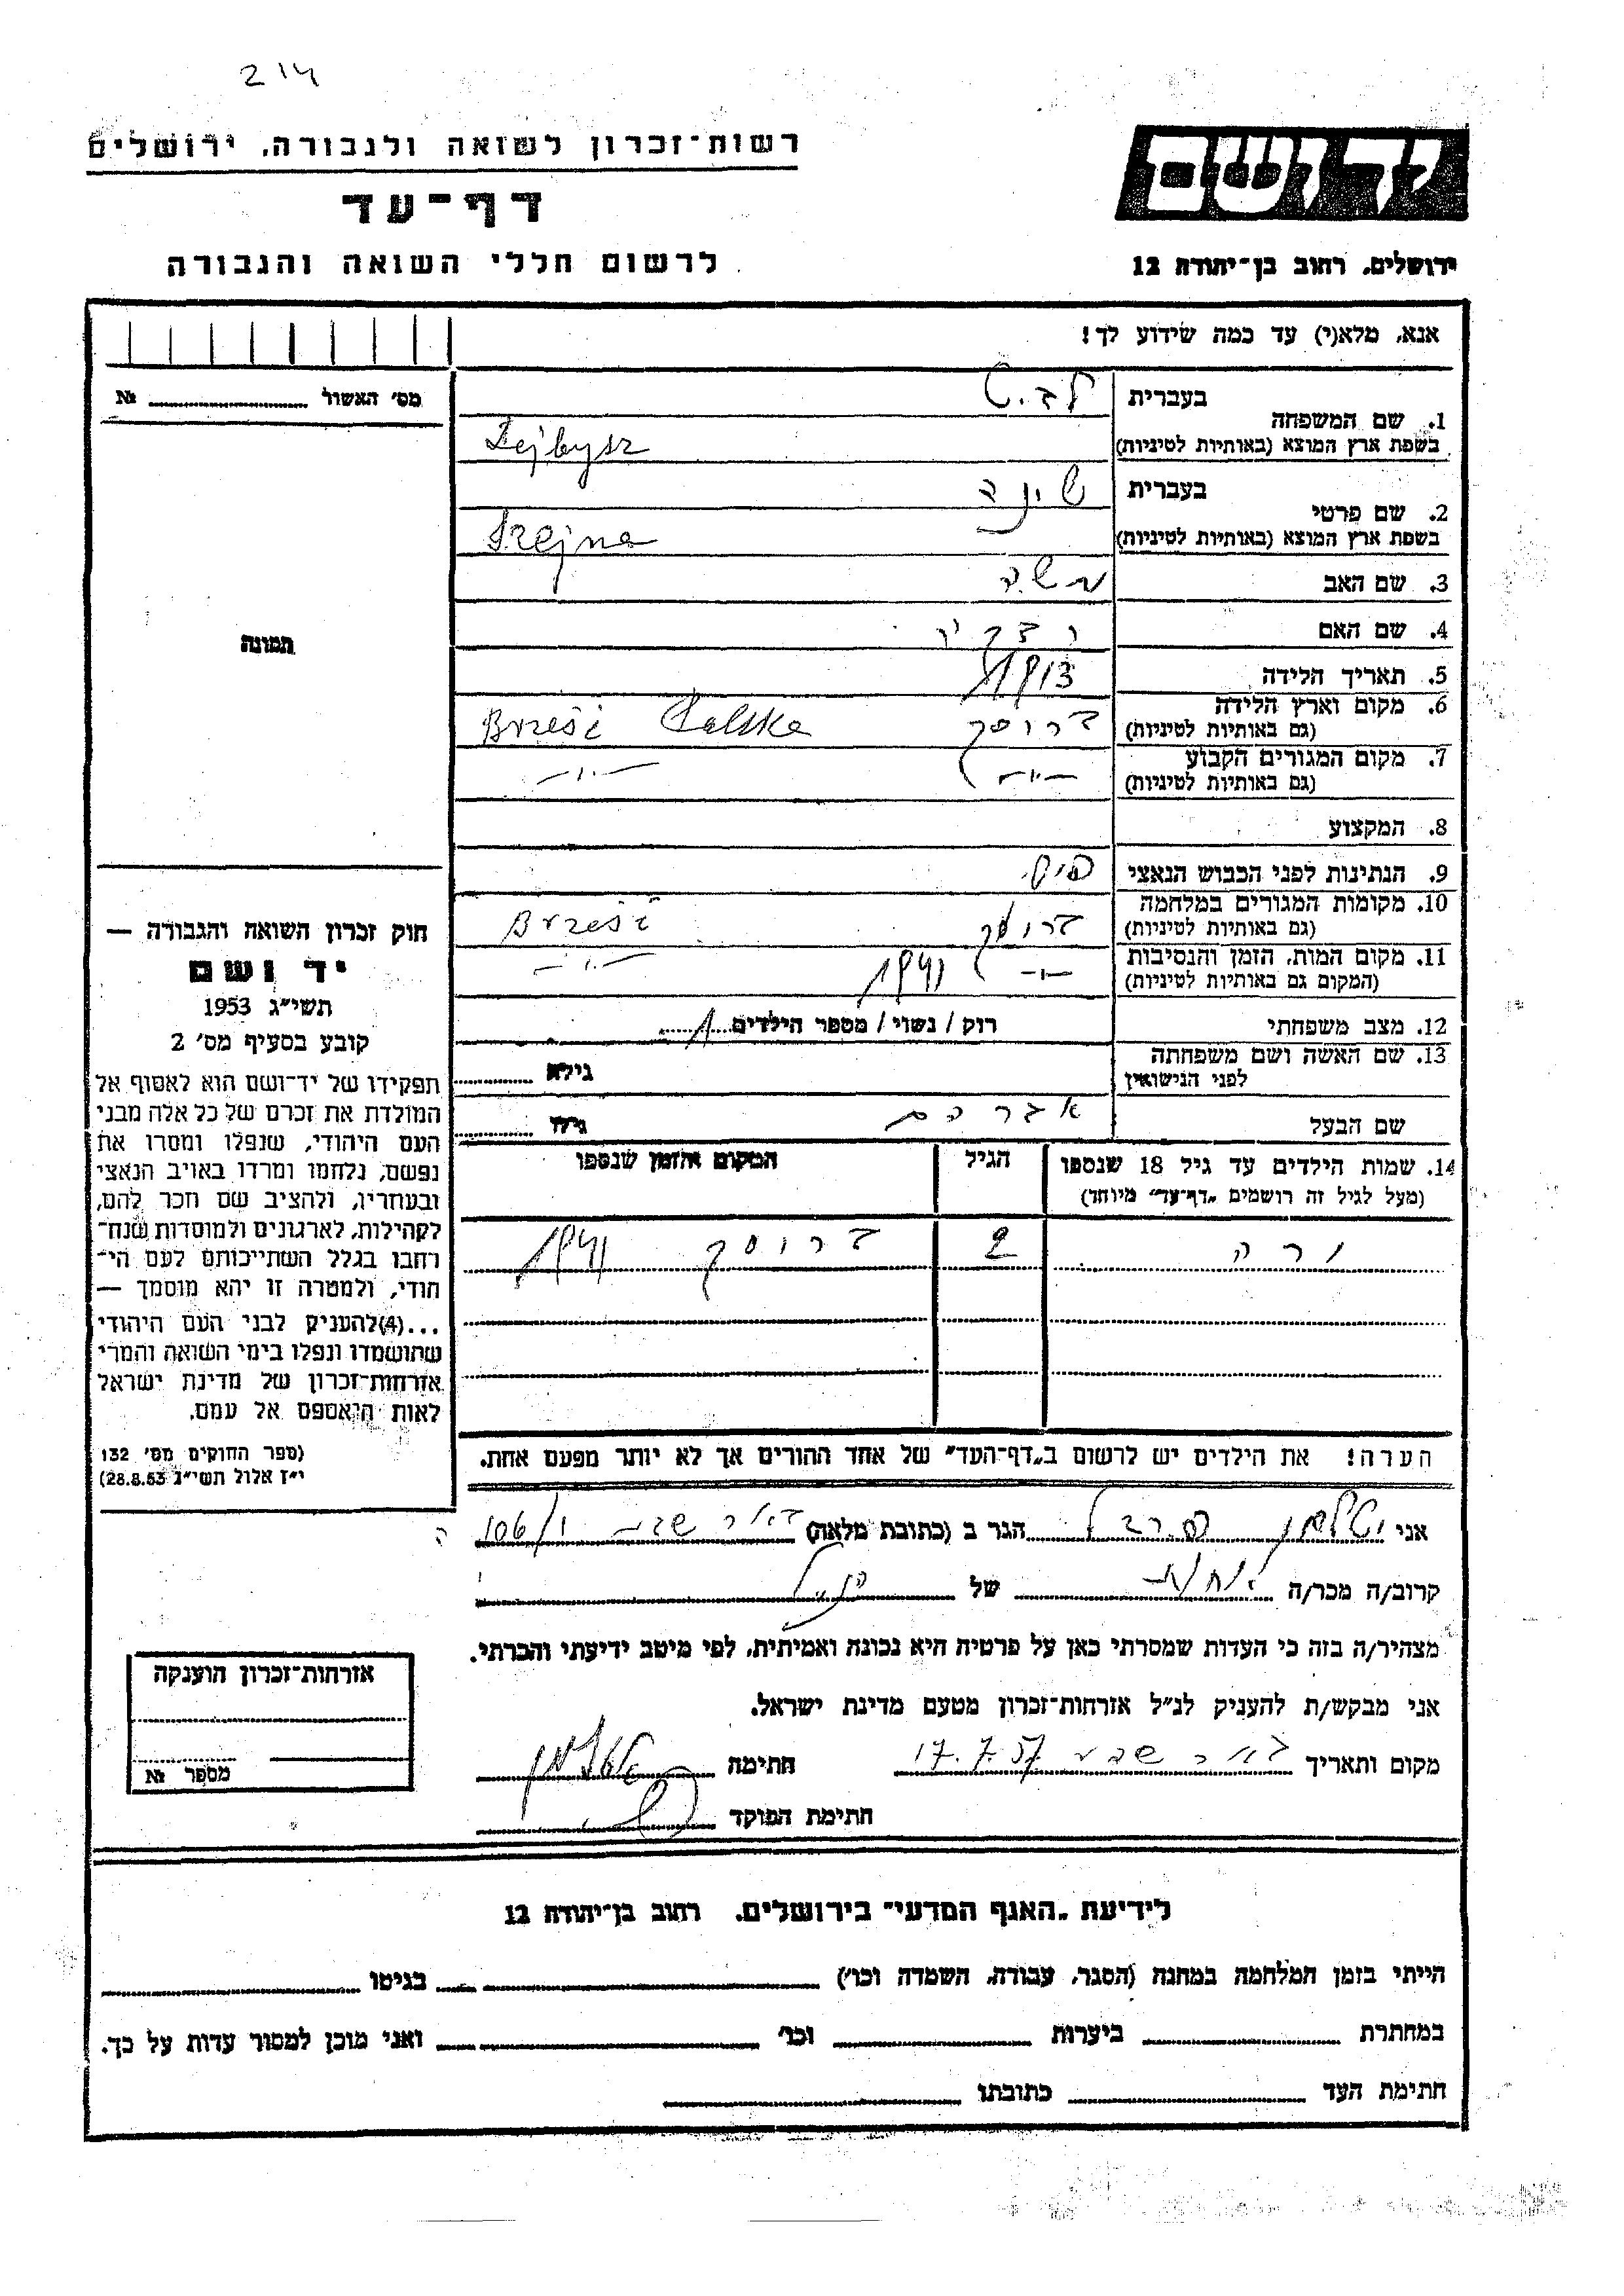 214
רשות־זכרון לשואה ולגבורה, ירושלים
ידושם
דף־עד
לרשום חללי השואה והגבורה
ירושלים, רחוב בן־יהודה 12
אנא, מלא(י) עד כמה שידוע לך!
מס' האשול № 
1. שם המשפחה
בעברית
בשפת ארץ המוצא (באותיות לטיניות) Lejbysz
2. שם פרטי
בעברית שינה
בשפת ארץ המוצא (באותיות לטיניות) Szejna
3. שם האב משה
4. שם האם
5. תאריך הלידה 1913
6. מקום וארץ הלידה בריסק Brześć Polska
(גם באותיות לטיניות)
7. מקום המגורים הקבוע —"— —"—
(גם באותיות לטיניות)
8. המקצוע
9. הנתינות לפני הכבוש הנאצי
10. מקומות המגורים במלחמה בריסק Brześć
(גם באותיות לטיניות)
11. מקום המות, הזמן והנסיבות —"— 1941 —"—
(המקום גם באותיות לטיניות)
12. מצב משפחתי רוק / נשוי / מספר הילדים 1
13. שם האשה ושם משפחתה
לפני הנישואין
גילא
שם הבעל אברהם גילו
14. שמות הילדים עד גיל 18 שנספו
(מעל לגיל זה רושמים "דף־עד" מיוחד)
הגיל
המקום והזמן שנספו
ורה 2 בריסק 1941
הערה! את הילדים יש לרשום ב"דף־העד" של אחד ההורים אך לא יותר מפעם אחת.
תמונה
חוק זכרון השואה והגבורה —
יד ושם
תשי"ג 1953
קובע בסעיף מס' 2
תפקידו של יד־ושם הוא לאסוף אל
המולדת את זכרם של כל אלה מבני
העם היהודי, שנפלו ומסרו את
נפשם, נלחמו ומרדו באויב הנאצי
ובעוזריו, ולהציב שם וזכר להם,
לקהילות, לארגונים ולמוסדות שנח־
רבו בגלל השתייכותם לעם הי־
הודי, ולמטרה זו יהא מוסמך —
...(4) להעניק לבני העם היהודי
שהושמדו ונפלו בימי השואה והמרי
אזרחות־זכרון של מדינת ישראל
לאות היאספם אל עמם.
(ספר החוקים מס' 132
י"ז אלול תשי"ג 28.8.53)
אני הגר ב (כתובת מלאה) באר שבע 106/
קרוב/ה מכר/ה של הנ"ל
מצהיר/ה בזה כי העדות שמסרתי כאן על פרטיה היא נכונה ואמיתית, לפי מיטב ידיעתי והכרתי.
אני מבקש/ת להעניק לנ"ל אזרחות־זכרון מטעם מדינת ישראל.
מקום ותאריך באר שבע 17.7.57 חתימה
חתימת הפוקד
אזרחות־זכרון הוענקה
מספר №
לידיעת "האגף המדעי" בירושלים, רחוב בן־יהודה 12
הייתי בזמן המלחמה במחנה (הסגר, עבודה, השמדה וכו') בגיטו
במחתרת ביערות וכו' ואני מוכן למסור עדות על כך.
חתימת העד כתובתו